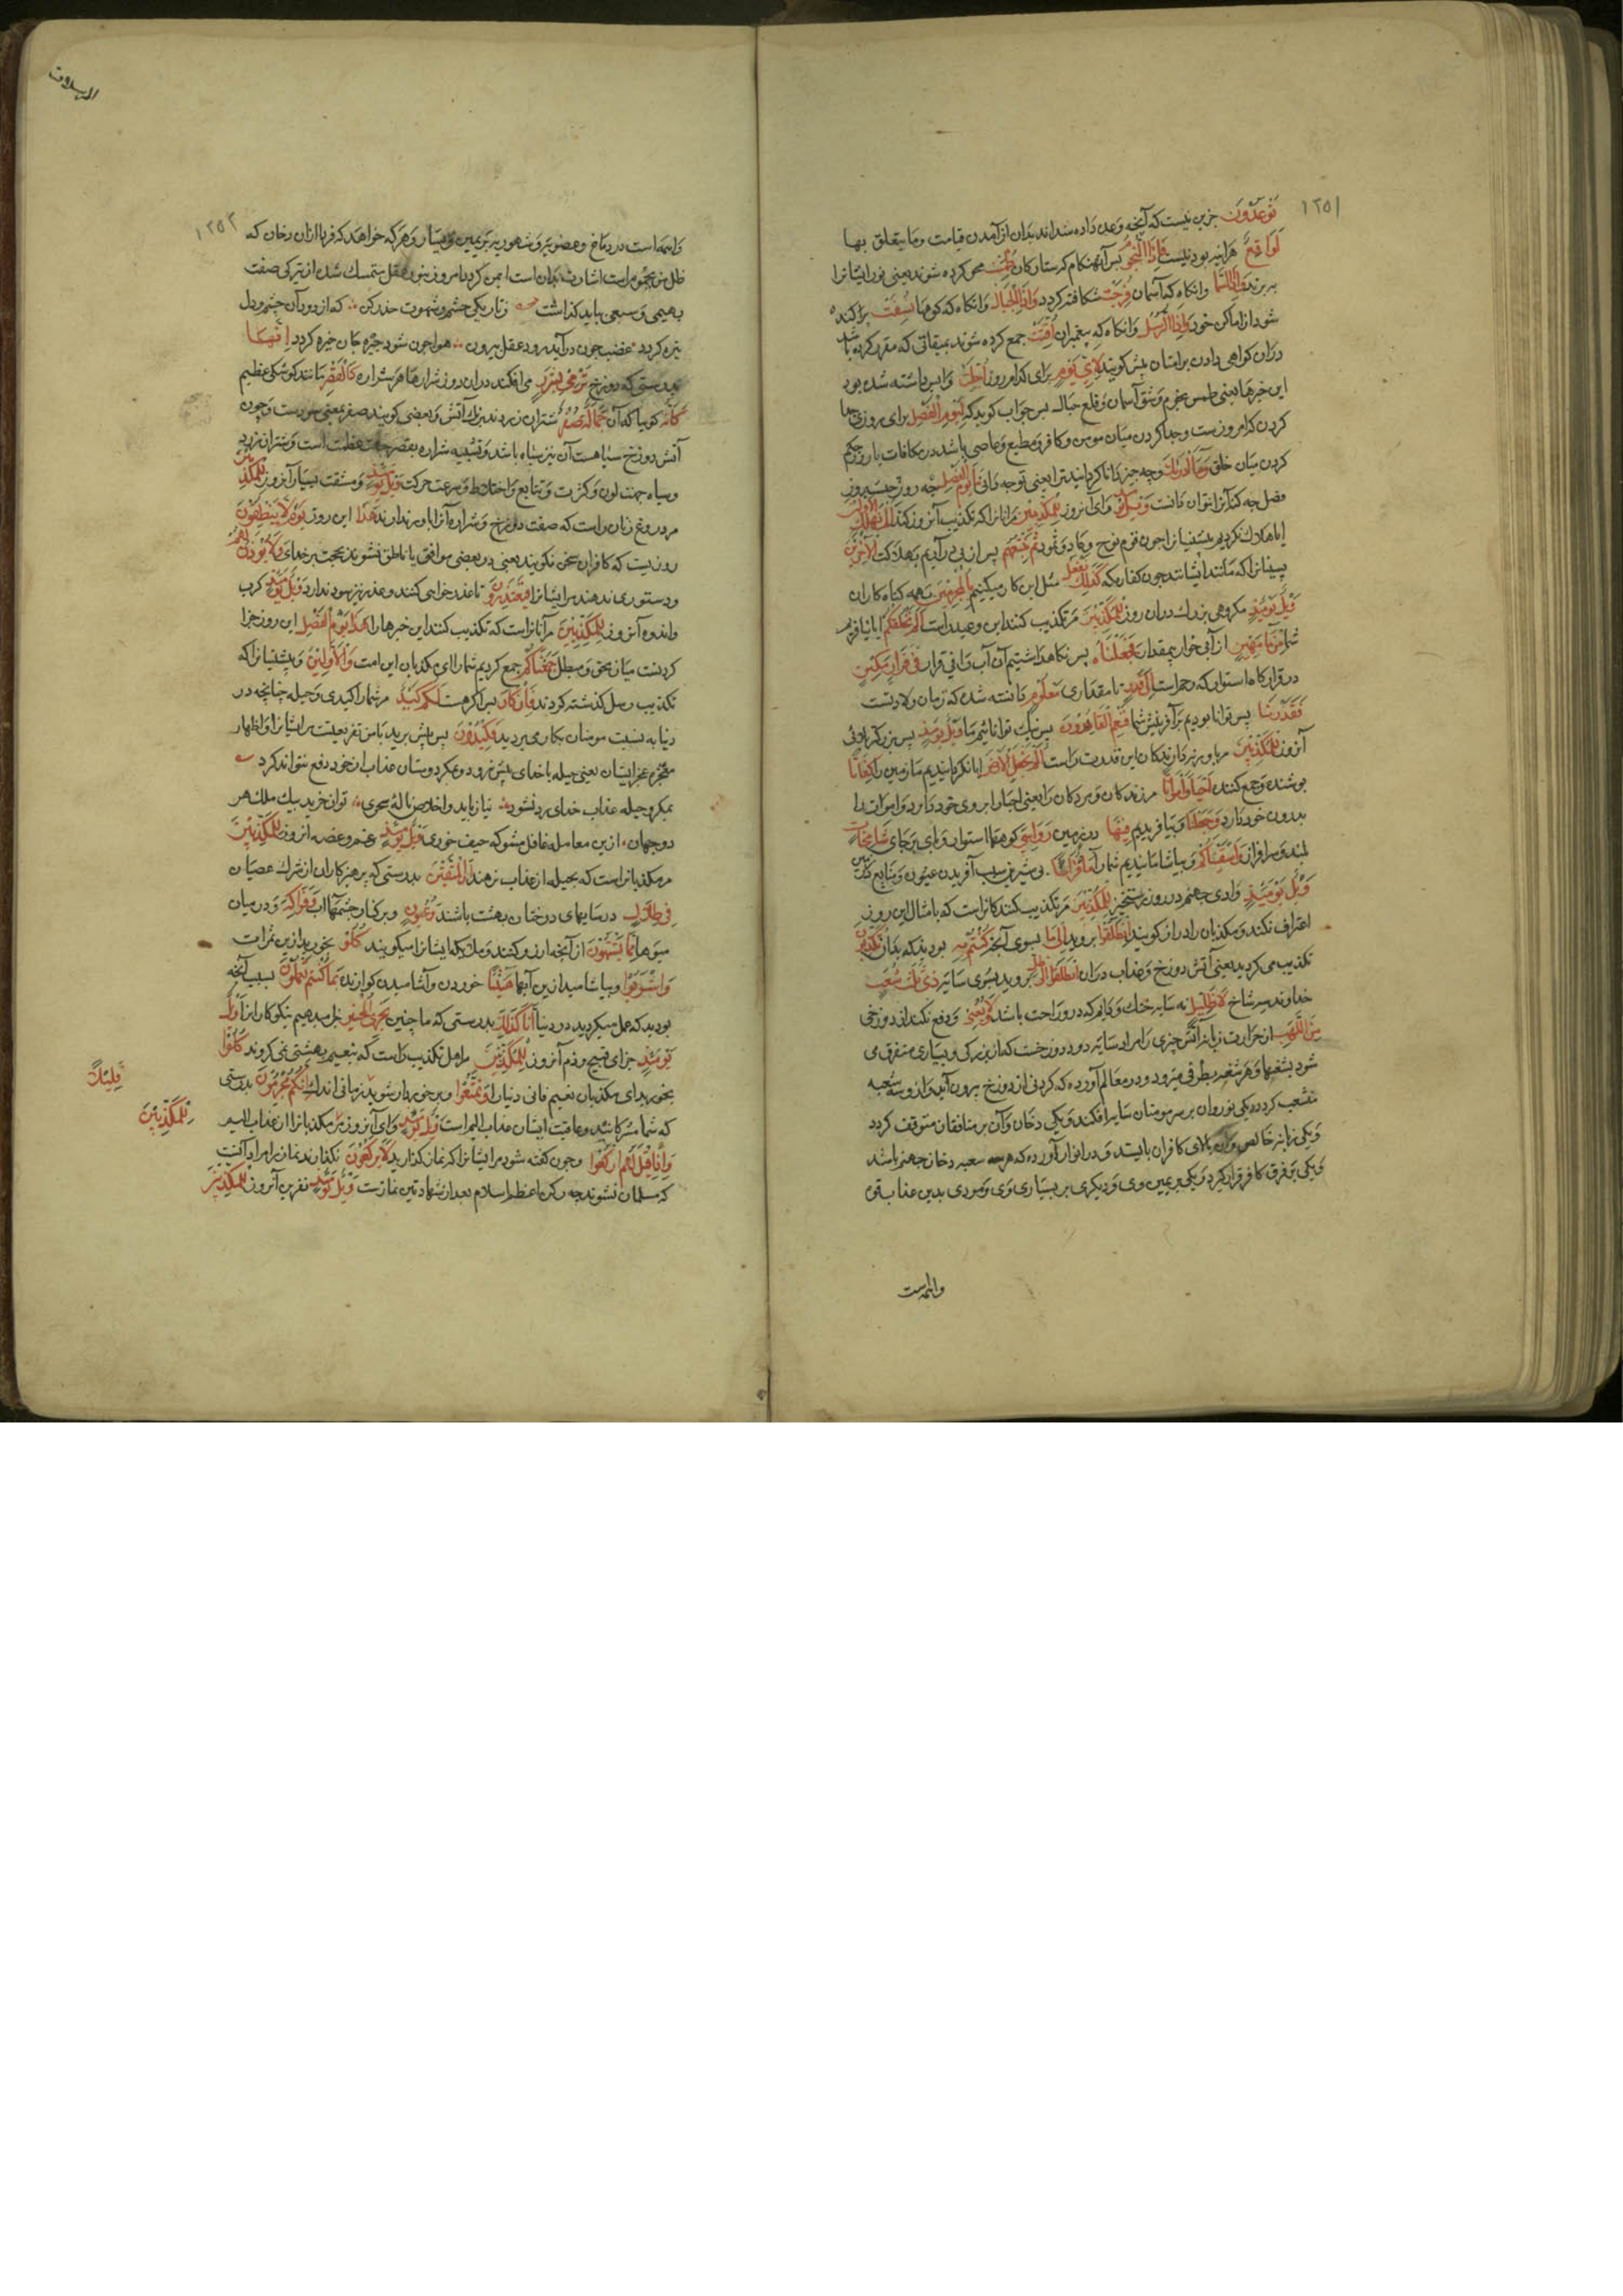 ۱۲۵۱
توعدون جزین نیست که آنچه وعده داده شده‌اند بدان از آمدن قیامت وما یتعلق بها
لواقع هرآینه بودنیست فاذا النجوم پس آنهنکام که ستارکان طمست محو کرده شوند یعنی نور ایشانرا
ببرند واذا السما وانکاه که آسمان فرجت شکافته کردد واذا الجبال وانکاه که کوهها نسفت براکنده
شود از اماکن خود واذا الرسل وانکاه که پیغمبران اقتت جمع کرده شوند بمیقاتی که مقرر کرده باشد
دران کواهی دادن بر امتان پیش کویند لای یوم برای کدام روز اجلت واپس داشته شده بود
این خبرها یعنی طمس نجوم وشق آسمان وقلع جبال پس جواب کوید که لیوم الفصل برای روز
کردن کدام روزست وجدا کردن میان مومن وکافر ومطیع وعاصی باشد در مکافات یا روز حکم
کردن میان خلق وما ادریک وچه چیز دانا کردانید ترا یعنی تو چه دانی ما یوم الفصل چه روز
فصل چه کنه آنرا نتوان دانست ویل یومئذ وای آنروز للمکذبین مر آنانرا که تکذیب آنروز کنند الم نهلک الاولین
ایا هلاک نکردیم پیشینیانرا چون قوم نوح وعاد وثمود ثم نتبعهم پس از پی در آریم بهلاکت الاخرین
پسینانرا که مانند ایشانند چون کفار مکه کذلک نفعل مثل این کار میکنیم بالمجرمین بهمه کناه کاران
ویل یومئذ مکروهی بزرک دران روز للمکذبین مر تکذیب کنند این وعید است الم نخلقکم ایا نیافریدیم
شما من ماء مهین از آبی خوار بیمقدار فجعلناه پس نکاهداشتیم آن آب را فی قرار مکین
در قرار کاه استوار که رحم است الی قدر تا مقداری معلوم دانسته شده که زمان ولادتست
فقدرنا پس توانا بودیم بر آفرینش شما فنعم القادرون پس نیک توانائیم ما ویل یومئذ پس بزرکتر
آنروز للمکذبین مر باور ندارندکان این قدرت راست الم نجعل الارض ایا نکردانیدیم ما زمین را کفاتا
پوشنده وجمع کننده احیاء وامواتا مر زندکان ومردکان را یعنی احیا را بر روی خود دارد واموات را
بدرون خود دارد وجعلنا وبیافریدیم فیها در زمین رواسی کوهها استوار وپای برجای شامخات
بلند وسرافراز واسقیناکم وبیاشامانیدیم شما را ماء فراتا آبی شیرین سبب آفریدن عیون ومنابع
ویل یومئذ وادی جهنم در روز رستخیز للمکذبین مر تکذیب کنندکانراست که بامثال این روز
اعتراف نکنند ومکذبان را دران کویند انطلقوا بروید الی ما بسوی آنچیز کنتم به بودید که بدان تکذبون
تکذیب می کردید یعنی آتش دوزخ وعذاب دران انطلقوا الی ظل بروید بسوی سایه ذی ثلث شعب
خداوند سه شاخ لا ظلیل نه سایه خنک ودایم که درو راحت باشد ولا یغنی ودفع نکند از دوزخی
من اللهب از حرارت زبانه آتش چیزی را مراد سایه دود دوزخست که از بزرکی وبسیاری متفرق می
شود بشعبها وهر شعبه بطرفی میرود ودر معالم آورده که کردنی از دوزخ بیرون آید وازو سه شعبه
منشعب کردد یکی نور وآن بر سر مومنان سایه افکند ویکی دخان وآن بر منافقان متوقف کردد
ویکی زبانه خالص وآن بالای کافران بایستد ودر انوار آورده که هر سه شعبه دخان جهنم باشد
ویکی بر فرق کافر قرار کیرد ویکی بر یمین وی ودیکری بر یساری وی ومودی بدین عذاب قوه
واهمه است
المرسلات
۱۲۵۲
واهمه است در دماغ وغضبیه وشهویه بر یمین ویسار وهر که خواهد که فردا ازان دخان که
ظل من یحموم است اشارت بدان است ایمن کردد امروز بنور عقل متمسک شده از تیرکی صفت
بهیمی وسبعی بباید کذاشت زتاریکی خشم وشهوت حذر کن که از دود آن چشم ودل
تیره کردد غضب چون درآید رود عقل بیرون هوا چون شود چیره جان خیره کردد انها
بدرستی که دوزخ ترمی بشرر می افکند دران روز شرارها هر شراره کالقصر مانند کوشکی عظیم
کانه کویا که آن جمالت صفر شتران زردند برنک آتش وبعضی کویند صفر بمعنی سودست وچون
آتش دوزخ سیاهست آن نیز سیاه باشد وتشبیه شراره بقصر جهت عظمت است وشتران زرد
وسیاه جهت لون وکثرت وتتابع واختلاط وسرعت حرکت ویل یومئذ ومشقت بسیار آنروز للمکذبین
مر دروغ زنان راست که صفت دوزخ وشراره آنرا باور ندارند هذا این روز یوم لا ینطقون
روزیست که کافران سخن نکویند یعنی در بعضی مواقف یا ناطق نشوند بحجت بر خدای ولا یوذن لهم
ودستوری ندهند مر ایشانرا فیعتذرون تا عذر خواهی کنند وعذر نیز سود ندارد ویل یومئذ کرب
واندوه آنروز للمکذبین مر آنانراست که تکذیب کنند این خبرها را هذا یوم الفصل این روز جزا
کردنست میان محق ومبطل جمعناکم جمع کردیم شما را ای مکذبان این امت والاولین وپیشینیانرا که
تکذیب رسل کذشته کردند فان کان پس اکر هست لکم کید مر شما را کیدی وحیله چنانچه در
دنیا به نسبت مومنان بکار می بردید فکیدون پس پیش برید با من تقریعیست مر ایشانرا واظهار
عجز ایشان یعنی حیله با خدای پیش نرود وبمکر دوستان عذاب از خود دفع نتواند کرد
بمکر وحیله عذاب خدای رد نشود نیاز باید واخلاص ناله سحری توان خرید بیک ملک هر
دو جهان ازین معامله غافل مشو که حیف خوری ویل یومئذ غم وغصه انروز للمکذبین
مر مکذبانراست که بحیله از عذاب نرهند ان المتقین بدرستی که پرهیزکاران از شرک عصیان
فی ظلال در سایهای درختان بهشت باشند وعیون وبر کنار چشمهاء آب وفواکه ودر میان
میوها مما یشتهون از آنچه ارزو کنند وملائکه ایشانرا میکویند کلوا بخورید ازین ثمرات
واشربوا وبیاشامید ازین آبها هنیئا خوردن وآشامیدن کوارنده بما کنتم تعملون بسبب آنچه
بودید که عمل میکردید در دنیا انا کذلک بدرستی که ما چنین نجزی المحسنین جزا میدهیم نیکوکارانرا ویل
یومئذ جزای قبیح وذم آنروز للمکذبین مر اهل تکذیب راست که بنعیم بهشتی نمی کروند کلوا
بخورید ای مکذبان نعیم فانی دنیا را وتمتعوا وبرخورداری شوید زمانی اندک انکم مجرمون بدرستی
قلیلا
که شما مشرکانید وعاقبت ایشان عذاب الیم است ویل یومئذ وای آنروز مر مکذبانرا از عذاب الیم
للمکذبین
واذا قیل لهم ارکعوا وچون کفته شود مر ایشانرا که نماز کذارید لا یرکعون نکذارند نماز را مراد آنست
که مسلمان نشوند چه رکن اعظم اسلام بعد از شهادتین نمازست ویل یومئذ نفرین آنروز للمکذبین